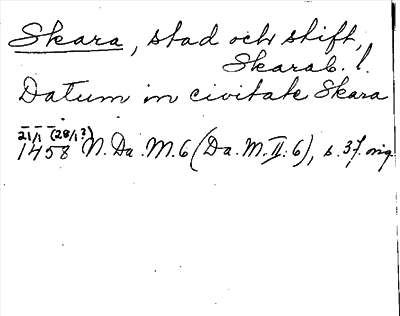 Skara, stad och stift,
Skarab. l.
Datum in civitate Skara
21/1 (28/1?)
1458 N. Da. M. 6 (Da. M. II: 6), s. 37. orig